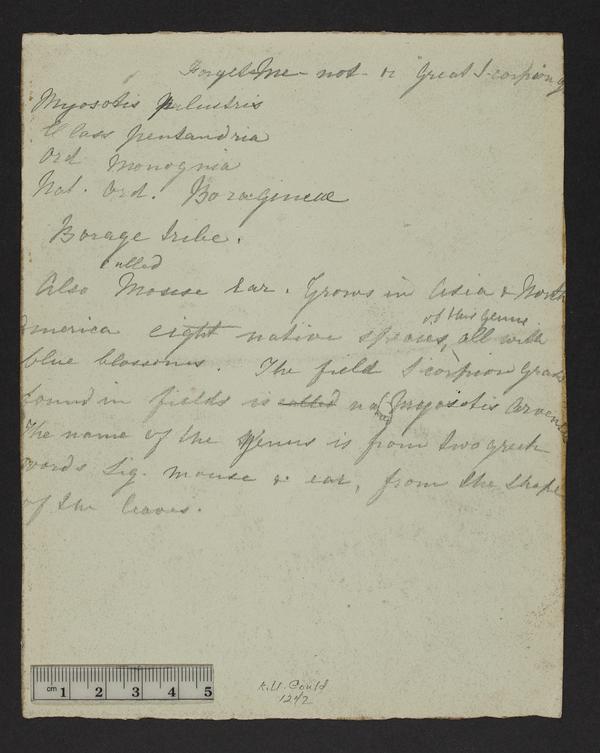 Forget-Me-not- or Great Scorpion G
Myosotis Palustris
Class pentandria
Ord Monognia
Nat. Ord. Boragineae
Borage tribe.
called
Also Mouse Ear. Grows in Asia & North
America eight native species, all with
of this genus
blue blossoms. The field Scorpion Grass
found in fields is called Myosotis Arvens
The name of the Genus is from two greek
words sig. mouse & ear, from the shape
of the leaves.
cm 1 2 3 4 5
A.U. Could
1242